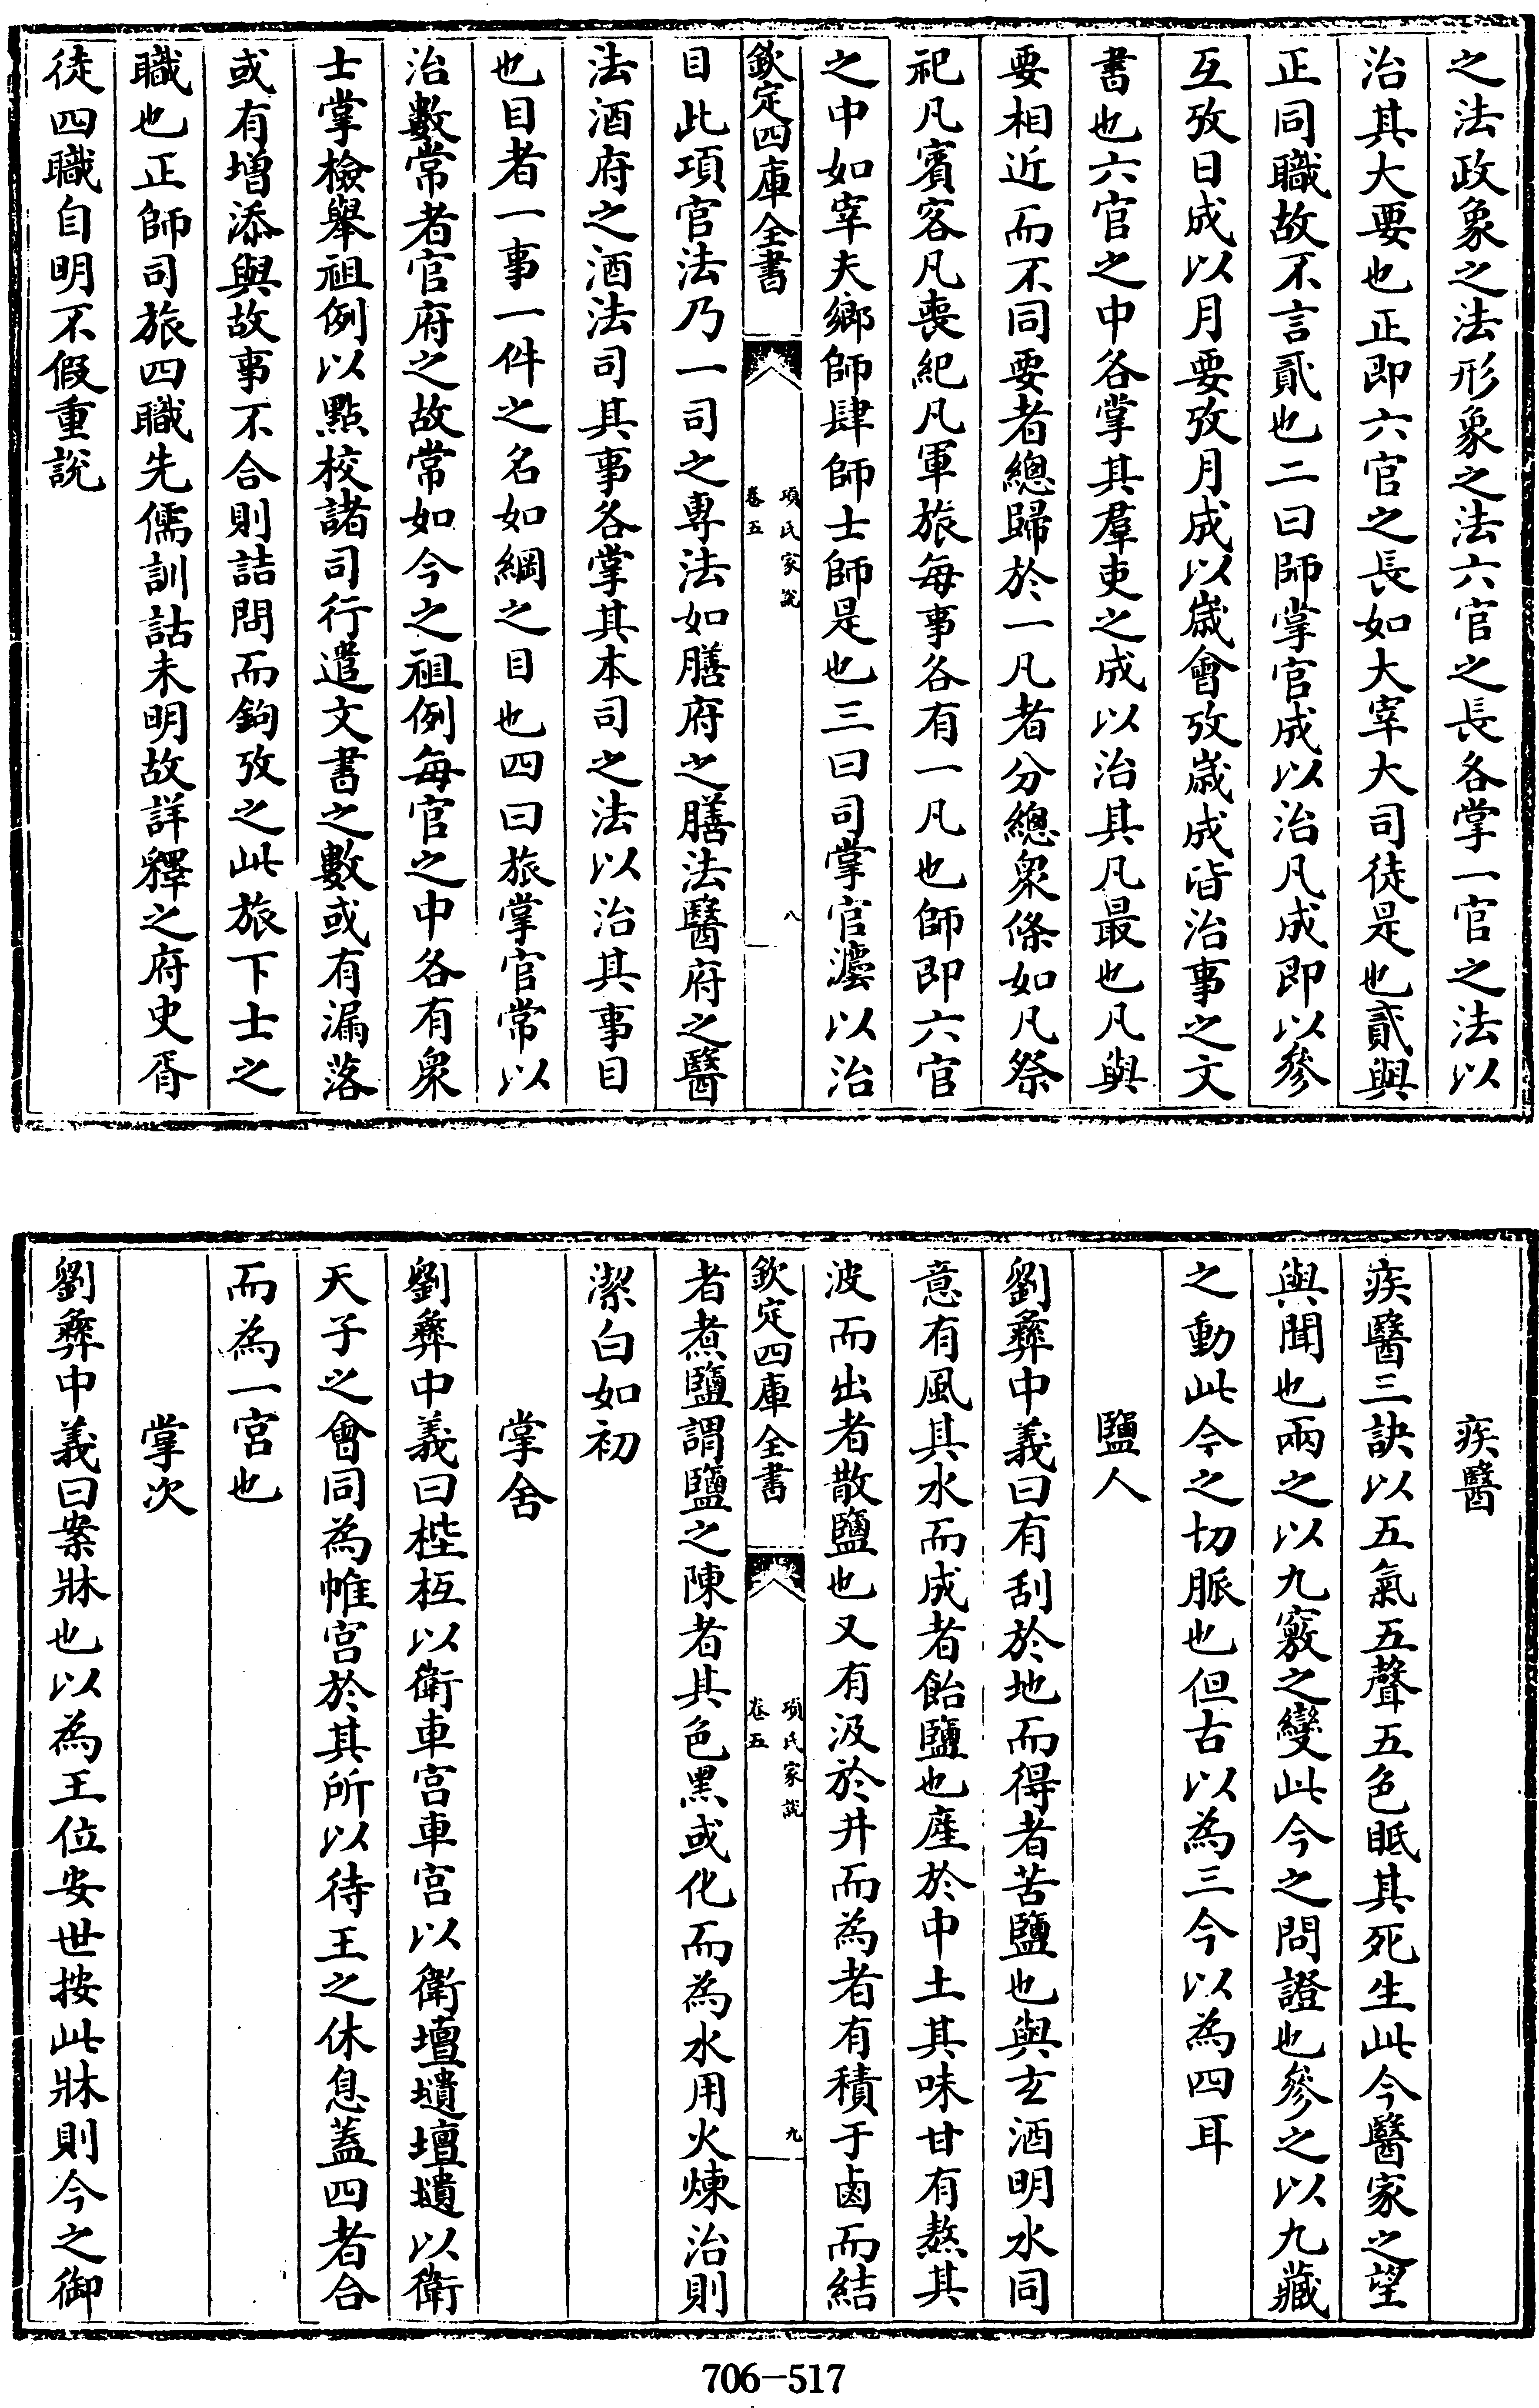 之法政象之法形象之法六官之長各掌一官之法以
治其大要也正即六官之長如大宰大司徒是也貳與
正同職故不言貳也二曰師掌官成以治凡成即以參
互攷日成以月要攷月成以嵗會攷嵗成皆治事之文
書也六官之中各掌其羣吏之成以治其凡最也凡與
要相近而不同要者總歸於一凡者分總衆條如凡祭
祀凡賓客凡喪紀凡軍旅每事各有一凡也師即六官
之中如宰夫鄉師肆師士師是也三曰司掌官灋以治
欽定四庫全書
項氏家說
卷五
八
目此項官法乃一司之專法如膳府之膳法醫府之醫
法酒府之酒法司其事各掌其本司之法以治其事目
也目者一事一件之名如綱之目也四曰旅掌官常以
治數常者官府之故常如今之祖例每官之中各有衆
士掌檢舉祖例以點校諸司行遣文書之數或有漏落
或有增添與故事不合則詰問而鉤攷之此旅下士之
職也正師司旅四職先儒訓詁未明故詳釋之府史胥
徒四職自明不假重說
疾醫
疾醫三訣以五氣五聲五色眡其死生此今醫家之望
與聞也兩之以九竅之變此今之問證也參之以九藏
之動此今之切脈也但古以為三今以為四耳
鹽人
劉彝中義曰有刮於地而得者苦鹽也與玄酒明水同
意有風其水而成者飴鹽也產於中土其味甘有熬其
波而出者散鹽也又有汲於井而為者有積于鹵而結
欽定四庫全書
項氏家說
卷五
九
者煮鹽謂鹽之陳者其色黑或化而為水用火煉治則
潔白如初
掌舍
劉彝中義曰梐枑以衛車宮車宮以衛壇壝壇壝以衛
天子之會同為帷宮於其所以待王之休息蓋四者合
而為一宮也
掌次
劉彝中義曰案牀也以為王位安世按此牀則今之御
706-517